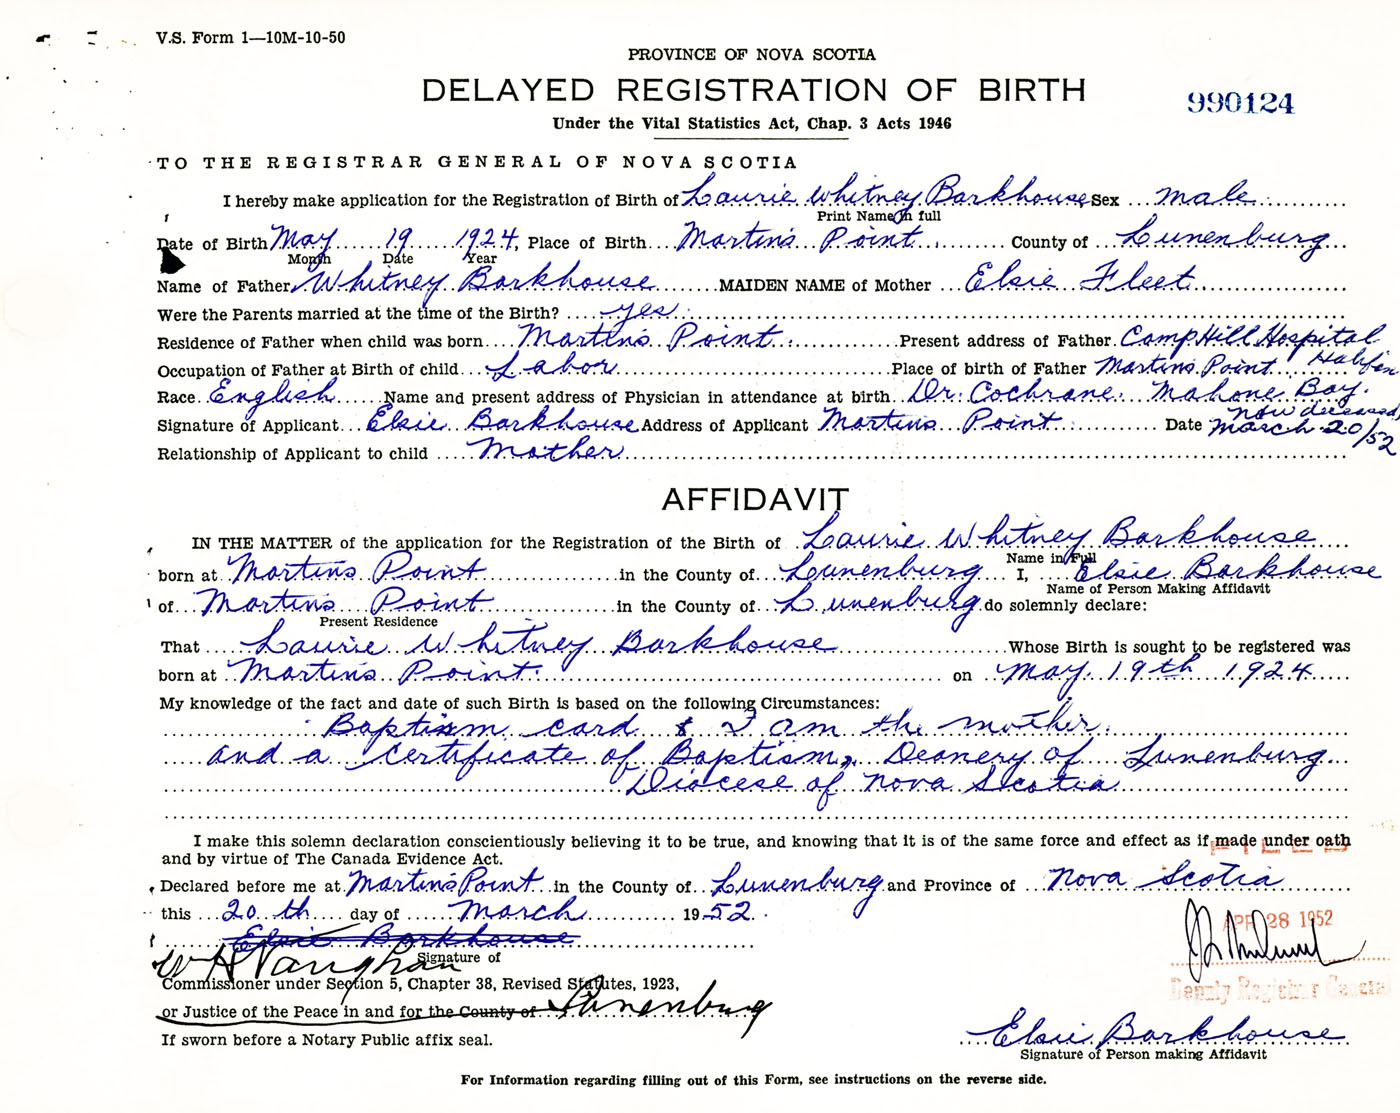 V.S. Form 1—10M-10-50
PROVINCE OF NOVA SCOTIA
DELAYED REGISTRATION OF BIRTH
990124
Under the Vital Statistics Act, Chap. 3 Acts 1946
TO THE REGISTRAR GENERAL OF NOVA SCOTIA
I hereby make application for the Registration of Birth of Laurie Whitney Barkhouse, Sex male
Print Name in full
Date of Birth May 19 1924, Place of Birth Martins Point County of Lunenburg
Month Date Year
Name of Father Whitney Barkhouse MAIDEN NAME of Mother Elsie Fleet
Were the Parents married at the time of the Birth? yes
Residence of Father when child was born Martins Point Present address of Father Camp Hill Hospital
Halifax
Occupation of Father at Birth of child Labor Place of birth of Father Martins Point
Race English Name and present address of Physician in attendance at birth Dr. Cochrane. Mahone Bay.
now deceased,
Signature of Applicant Elsie Barkhouse Address of Applicant Martins Point Date March 20/52
Relationship of Applicant to child Mother
AFFIDAVIT
IN THE MATTER of the application for the Registration of the Birth of Laurie Whitney Barkhouse
Name in Full
born at Martins Point in the County of Lunenburg I, Elsie Barkhouse
Name of Person Making Affidavit
of Martins Point in the County of Lunenburg do solemnly declare:
Present Residence
That Laurie Whitney Barkhouse Whose Birth is sought to be registered was
born at Martins Point. on May. 19th 1924
My knowledge of the fact and date of such Birth is based on the following Circumstances:
Baptism card & I am the mother.
and a Certificate of Baptism, Deanery of Lunenburg
Diocese of Nova Scotia
I make this solemn declaration conscientiously believing it to be true, and knowing that it is of the same force and effect as if made under oath
and by virtue of The Canada Evidence Act.
FILED
Declared before me at Martins Point in the County of Lunenburg and Province of Nova Scotia
this 20th day of March 1952
APR 28 1952
Elsie Barkhouse
W H Vaughan
Signature of
Commissioner under Section 5, Chapter 38, Revised Statutes, 1923,
Deputy Registrar General
or Justice of the Peace in and for the County of Lunenburg
If sworn before a Notary Public affix seal.
Elsie Barkhouse
Signature of Person making Affidavit
For Information regarding filling out of this Form, see instructions on the reverse side.